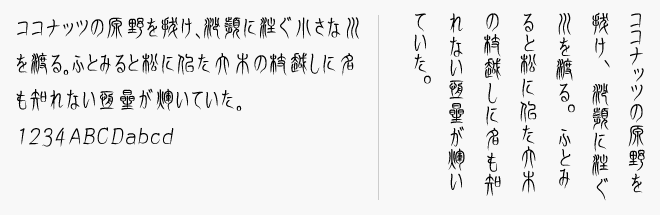 ココナッツの原野を抜け、沙頭に注ぐ小さな川
を渡る。ふとみると松に似た大木の枝越しに名
も知れない恒星が輝いていた。
1234ABCDabcd
ココナッツの原野を
抜け、沙頭に注ぐ小さな
川を渡る。ふとみ
ると松に似た大木
の枝越しに名も知
れない恒星が輝い
ていた。